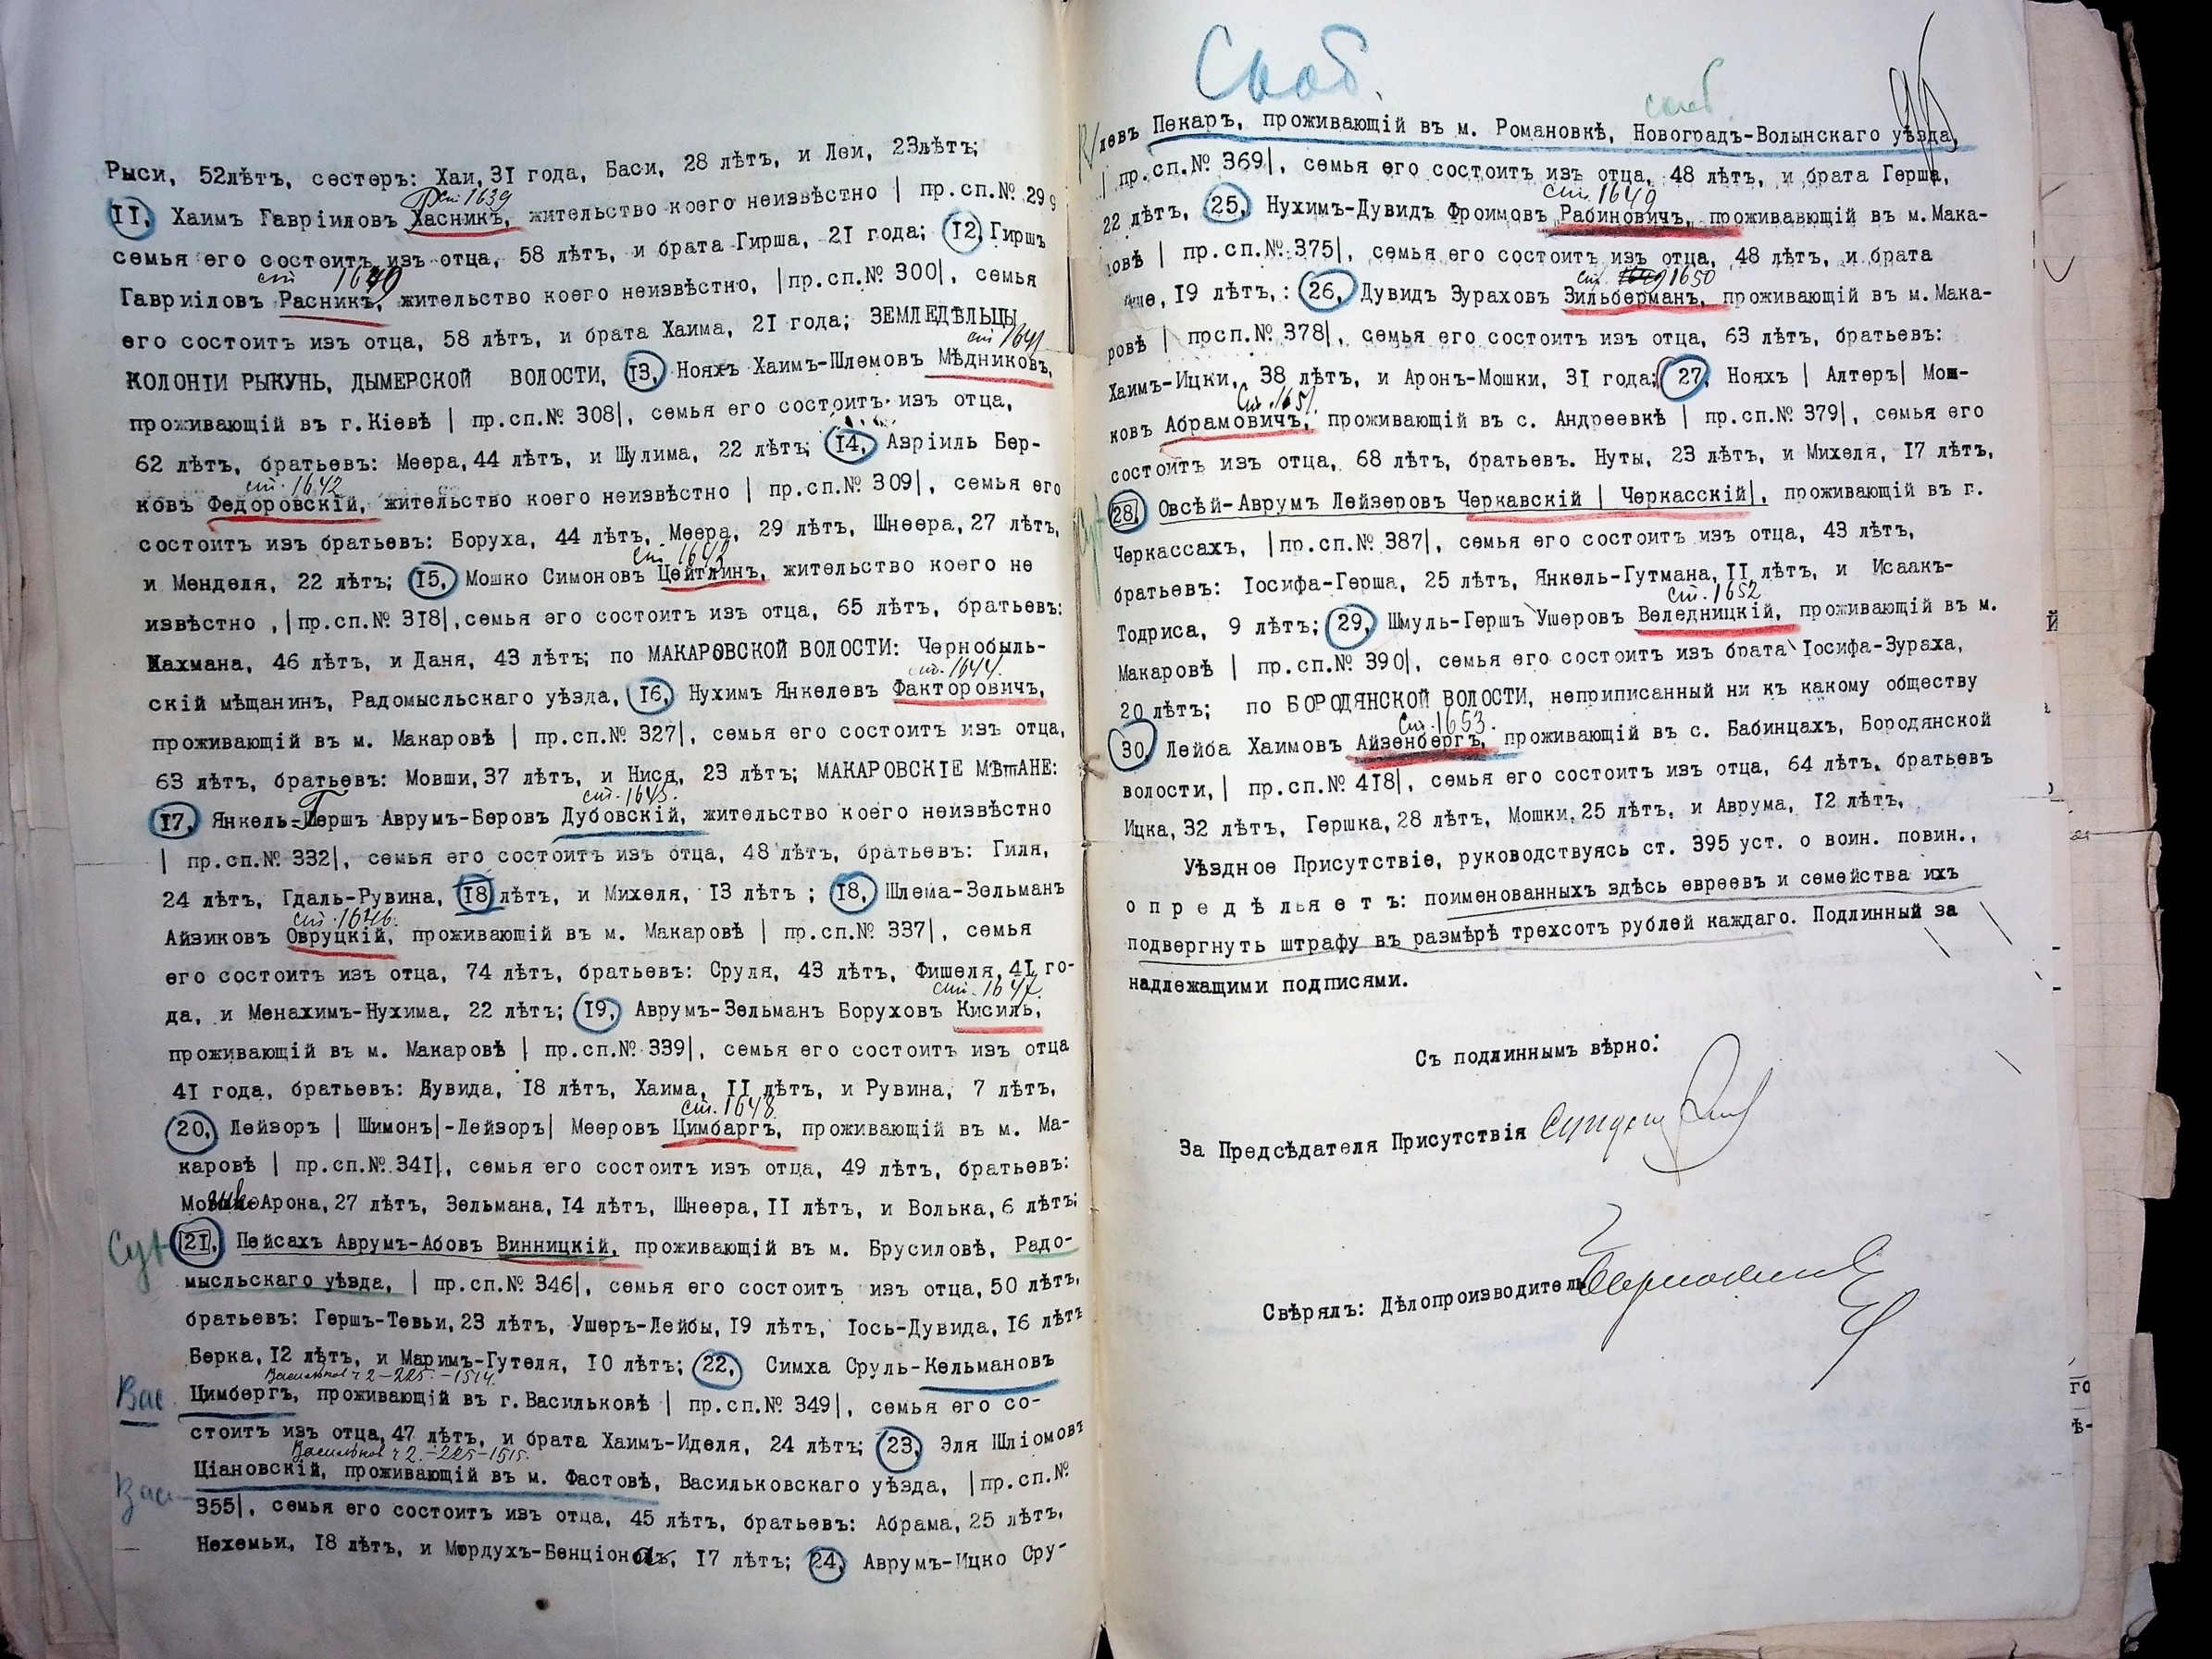 Рыси, 52лѣтъ, сестеръ: Хаи, 31 года, Баси, 28 лѣтъ, и Леи, 23лѣтъ;
ст 1639
11, Хаимъ Гавріиловъ Хасникъ, жительство коего неизвѣстно | пр.сп.№ 299
семья его состоитъ изъ отца, 58 лѣтъ, и брата Гирша, 21 года; 12, Гиршъ
ст 1640
Гавриіловъ Расникъ, жительство коего неизвѣстно, |пр.сп.№ 300|, семья
его состоитъ изъ отца, 58 лѣтъ, и брата Хаима, 21 года; ЗЕМЛЕДѢЛЬЦЫ
ст 1641
КОЛОНІИ РЫКУНЬ, ДЫМЕРСКОЙ ВОЛОСТИ, 13, Нояхъ Хаимъ-Шлемовъ Мѣдниковъ,
проживающій въ г.Кіевѣ | пр.сп.№ 308|, семья его состоитъ изъ отца,
62 лѣтъ, братьевъ: Меера, 44 лѣтъ, и Шулима, 22 лѣтъ; 14, Авріиль Бер-
ст. 1642
ковъ Федоровскій, жительство коего неизвѣстно | пр.сп.№ 309|, семья его
состоитъ изъ братьевъ: Боруха, 44 лѣтъ, Меера, 29 лѣтъ, Шнеера, 27 лѣтъ,
ст. 1643
и Менделя, 22 лѣтъ; 15, Мошко Симоновъ Цейтлинъ, жительство коего не
извѣстно ,|пр.сп.№ 318|,семья его состоитъ изъ отца, 65 лѣтъ, братьевъ:
Нахмана, 46 лѣтъ, и Даня, 43 лѣтъ; по МАКАРОВСКОЙ ВОЛОСТИ: Чернобыль-
ст. 1644.
скій мѣщанинъ, Радомысльскаго уѣзда, 16, Нухимъ Янкелевъ Факторовичъ,
проживающій въ м. Макаровѣ | пр.сп.№ 327|, семья его состоитъ изъ отца,
63 лѣтъ, братьевъ: Мовши, 37 лѣтъ, и Нися, 23 лѣтъ; МАКАРОВСКІЕ МѢЩАНЕ:
ст. 1645.
17, Янкель-Гершъ Аврумъ-Беровъ Дубовскій, жительство коего неизвѣстно
| пр.сп.№ 332|, семья его состоитъ изъ отца, 48 лѣтъ, братьевъ: Гиля,
24 лѣтъ, Гдаль-Рувина, 18 лѣтъ, и Михеля, 13 лѣтъ ; 18, Шлема-Зельманъ
ст. 1646.
Айзиковъ Овруцкій, проживающій въ м. Макаровѣ | пр.сп.№ 337|, семья
его состоитъ изъ отца, 74 лѣтъ, братьевъ: Сруля, 43 лѣтъ, Фишеля, 41 го-
ст. 1647.
да, и Менахимъ-Нухима, 22 лѣтъ; 19, Аврумъ-Зельманъ Боруховъ Кисиль,
проживающій въ м. Макаровѣ | пр.сп.№ 339|, семья его состоитъ изъ отца
41 года, братьевъ: Дувида, 18 лѣтъ, Хаима, 11 лѣтъ, и Рувина, 7 лѣтъ,
ст. 1648
20, Лейзоръ | Шимонъ|-Лейзоръ| Мееровъ Цимбаргъ, проживающій въ м. Ма-
каровѣ | пр.сп.№ 341|, семья его состоитъ изъ отца, 49 лѣтъ, братьевъ:
Арона, 27 лѣтъ, Зельмана, 14 лѣтъ, Шнеера, 11 лѣтъ, и Волька, 6 лѣтъ;
21, Пейсахъ Аврумъ-Абовъ Винницкій, проживающій въ м. Брусиловѣ, Радо-
мысльскаго уѣзда, | пр.сп.№ 346|, семья его состоитъ изъ отца, 50 лѣтъ,
братьевъ: Гершъ-Тевьи, 23 лѣтъ, Ушеръ-Лейбы, 19 лѣтъ, Іось-Дувида, 16 лѣтъ
Берка, 12 лѣтъ, и Маримъ-Гутеля, 10 лѣтъ; 22, Симха Сруль-Кельмановъ
Васильков ч 2-225-1514.
Вас Цимбергъ, проживающій въ г.Васильковѣ | пр.сп.№ 349|, семья его со-
стоитъ изъ отца, 47 лѣтъ, и брата Хаимъ-Иделя, 24 лѣтъ; 23, Эля Шліомовъ
Васильков ч 2.-225-1515.
Вас Ціановскій, проживающій въ м. Фастовѣ, Васильковскаго уѣзда, |пр.сп.№
355|, семья его состоитъ изъ отца, 45 лѣтъ, братьевъ: Абрама, 25 лѣтъ,
Нехемьи, 18 лѣтъ, и Мордухъ-Бенціона, 17 лѣтъ; 24, Аврумъ-Ицко Сру-
левъ Пекаръ, проживающій въ м. Романовкѣ, Новоградъ-Волынскаго уѣзда,
| пр.сп.№ 369|, семья его состоитъ изъ отца, 48 лѣтъ, и брата Герша,
ст. 1649
22 лѣтъ, 25, Нухимъ-Дувидъ Фроимовъ Рабиновичъ, проживавющій въ м.Мака-
ровѣ | пр.сп.№ 375|, семья его состоитъ изъ отца, 48 лѣтъ, и брата
ст. 1650
19 лѣтъ,: 26, Дувидъ Зураховъ Зильберманъ, проживающій въ м.Мака-
ровѣ | прсп.№ 378|, семья его состоитъ изъ отца, 63 лѣтъ, братьевъ:
Хаимъ-Ицки, 38 лѣтъ, и Аронъ-Мошки, 31 года; 27, Нояхъ | Алтеръ| Мош-
ст. 1651
ковъ Абрамовичъ, проживающій въ с. Андреевкѣ | пр.сп.№ 379|, семья его
состоитъ изъ отца, 68 лѣтъ, братьевъ. Нуты, 23 лѣтъ, и Михеля, 17 лѣтъ,
28, Овсѣй-Аврумъ Лейзеровъ Черкавскій | Черкасскій|, проживающій въ г.
Черкассахъ, |пр.сп.№ 387|, семья его состоитъ изъ отца, 43 лѣтъ,
братьевъ: Іосифа-Герша, 25 лѣтъ, Янкель-Гутмана, 11 лѣтъ, и Исаакъ-
ст. 1652
Тодриса, 9 лѣтъ; 29, Шмуль-Гершъ Ушеровъ Веледницкій, проживающій въ м.
Макаровѣ | пр.сп.№ 390|, семья его состоитъ изъ брата Іосифа-Зураха,
20 лѣтъ; по БОРОДЯНСКОЙ ВОЛОСТИ, неприписанный ни къ какому обществу
ст. 1653.
30, Лейба Хаимовъ Айзенбергъ, проживающій въ с. Бабинцахъ, Бородянской
волости, | пр.сп.№ 418|, семья его состоитъ изъ отца, 64 лѣтъ, братьевъ
Ицка, 32 лѣтъ, Гершка, 28 лѣтъ, Мошки, 25 лѣтъ, и Аврума, 12 лѣтъ,
Уѣздное Присутствіе, руководствуясь ст. 395 уст. о воин. повин.,
о п р е д ѣ л ь я е т ъ: поименованныхъ здѣсь евреевъ и семейства ихъ
подвергнуть штрафу въ размѣрѣ трехсотъ рублей каждаго. Подлинный за
надлежащими подписями.
Съ подлиннымъ вѣрно:
За Предсѣдателя Присутствія
Свѣрялъ: Дѣлопроизводитель